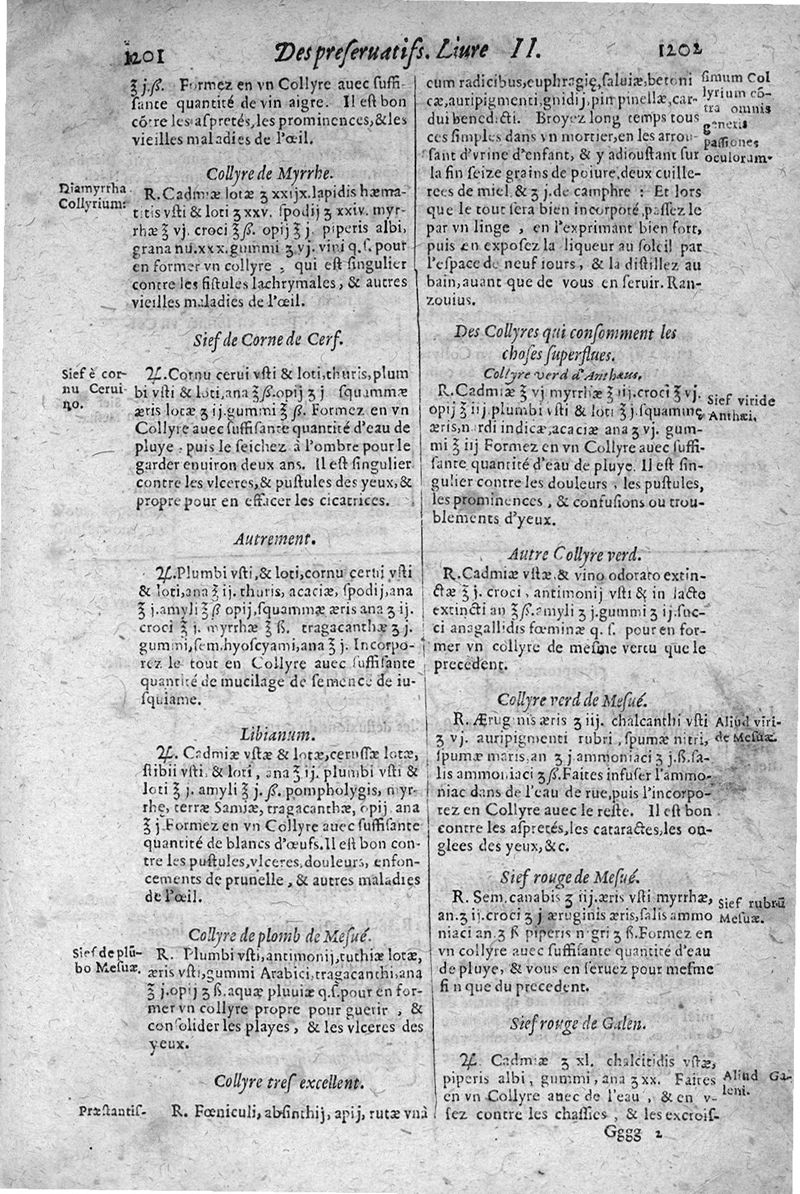 1201 Des preseruatifs. Liure II. 1202
℥ j.ß. Formez en vn Collyre auec suffi-
sante quantité de vin aigre. Il est bon
cõtre les aspretés, les prominences, & les
vieilles maladies de l'œil.
Collyre de Myrrhe.
Diamyrrha
Collyrium:
R. Cadmiæ lotæ ʒ xxijx. lapidis hæma-
titis vsti & loti ʒ xxv. spodij ʒ xxiv. myr-
rhæ ʒ vj. croci ℥ß. opij ℥ j. piperis albi,
grana nu.xxx. gummi ʒ vj. vini q.s. pour
en former vn collyre , qui est singulier
contre les fistules lachrymales, & autres
vieilles maladies de l'œil.
Sief de Corne de Cerf.
Sief è cor-
nu Cerui-
no.
♃. Cornu cerui vsti & loti, thuris, plum
bi vsti & loti, ana ℥ß. opij ʒ j squammæ
æris lotæ ʒ ij. gummi ℥ ß. Formez en vn
Collyre auec suffisante quantité d'eau de
pluye : puis le seichez à l'ombre pour le
garder enuiron deux ans. Il est singulier
contre les vlceres, & pustules des yeux, &
propre pour en effacer les cicatrices.
Autrement.
♃. Plumbi vsti, & loti, cornu cerui vsti
& loti, ana ℥ ij. thuris, acaciæ, spodij, ana
℥ j. amyli ℥ ß opij, squammæ æris ana ʒ ij.
croci ℥ j. myrrhæ ℥ ß. tragacanthæ ʒ j.
gummi, sem. hyoscyami, ana ℥ j. Incorpo-
rez le tout en Collyre auec suffisante
quantité de mucilage de semence de iu-
squiame.
Libianum.
♃. Cadmiæ vstæ & lotæ, cerussæ lotæ,
stibii vsti & loti , ana ℥ ij. plumbi vsti &
loti ℥ j. amyli ℥ j. ß. pompholygis, myr-
rhę, terræ Samiæ, tragacanthæ, opij ana
℥ j. Formez en vn Collyre auec suffisante
quantité de blancs d'œufs. Il est bon con-
tre les pustules, vlceres, douleurs, enfon-
cements de prunelle , & autres maladies
de l'œil.
Collyre de plomb de Mesué.
Sief de plũ-
bo Mesuæ.
R. Plumbi vsti, antimonij, tuthiæ lotæ,
æris vsti, gummi Arabici, tragacanthi, ana
℥ j. opij ʒ ß. aquæ pluuiæ q.s. pour en for-
mer vn collyre propre pour guerir , &
consolider les playes, & les vlceres des
yeux.
Collyre tres excellent.
Præstantis-
R. Fœniculi, absinthij, apij, rutæ vnà
cum radicibus, euphragię, saluiæ, betoni
cæ, auripigmenti, gnidij, pimpinellæ, car-
dui benedicti. Broyez long temps tous
ces simples dans vn mortier, en les arrou-
sant d'vrine d'enfant, & y adioustant sur
la fin seize grains de poiure, deux cuille-
rees de miel & ʒ j. de camphre : Et lors
que le tout sera bien incorporé, passez le
par vn linge , en l'exprimant bien fort,
puis en exposez la liqueur au soleil par
l'espace de neuf iours, & la distillez au
bain, auant que de vous en seruir. Ran-
zouius.
simum Col
lyrium cõ-
tra omnis
generis
passiones
oculorum.
Des Collyres qui consomment les
choses superflues.
Collyre verd d'Anthæus.
R. Cadmiæ ℥ vj myrrhæ ℥ iij. croci ℥ vj.
opij ℥ iij. plumbi vsti & loti ℥ j. squamme
æris, nardi indicæ, acaciæ ana ʒ vj. gum-
mi ℥ iij Formez en vn Collyre auec suffi-
sante quantité d'eau de pluye. Il est sin-
gulier contre les douleurs , les pustules,
les prominences , & confusions ou trou-
blements d'yeux.
Sief viride
Anthæi.
Autre Collyre verd.
R. Cadmiæ vstæ, & vino odorato extin-
ctæ ℥ j. croci , antimonij vsti & in lacte
extincti an ℥ ß. amyli ʒ j. gummi ʒ ij. suc-
ci anagallidis fœminæ q. s. pour en for-
mer vn collyre de mesme vertu que le
precedent.
Collyre verd de Mesué.
R. Ærugnis æris ʒ iij. chalcanthi vsti
ʒ vj. auripigmenti rubri, spumæ nitri,
spumæ maris, an ʒ j ammoniaci ʒ j.ß. sa-
lis ammoniaci ʒß. Faites infuser l'ammo-
niac dans de l'eau de rue, puis l'incorpo-
rez en Collyre auec le reste. Il est bon
contre les aspretés, les cataractes, les on-
glees des yeux, &c.
Aliud viri-
de Mesuæ.
Sief rouge de Mesué.
R. Sem. canabis ʒ iij. æris vsti myrrhæ,
an. ʒ ij. croci ʒ j æruginis æris, salis ammo
niaci an ʒ ß piperis nigri ʒ ß. Formez en
vn collyre auec suffisante quantité d'eau
de pluye, & vous en seruez pour mesme
fin que du precedent.
Sief rubrũ
Mesuæ.
Sief rouge de Galen.
♃. Cadmiæ ʒ xl. chalcitidis vstæ,
piperis albi , gummi, ana ʒ xx. Faites
en vn Collyre auec de l'eau , & en v-
sez contre les chassies , & les excrois-
Aliud Ga-
leni.
Gggg 2